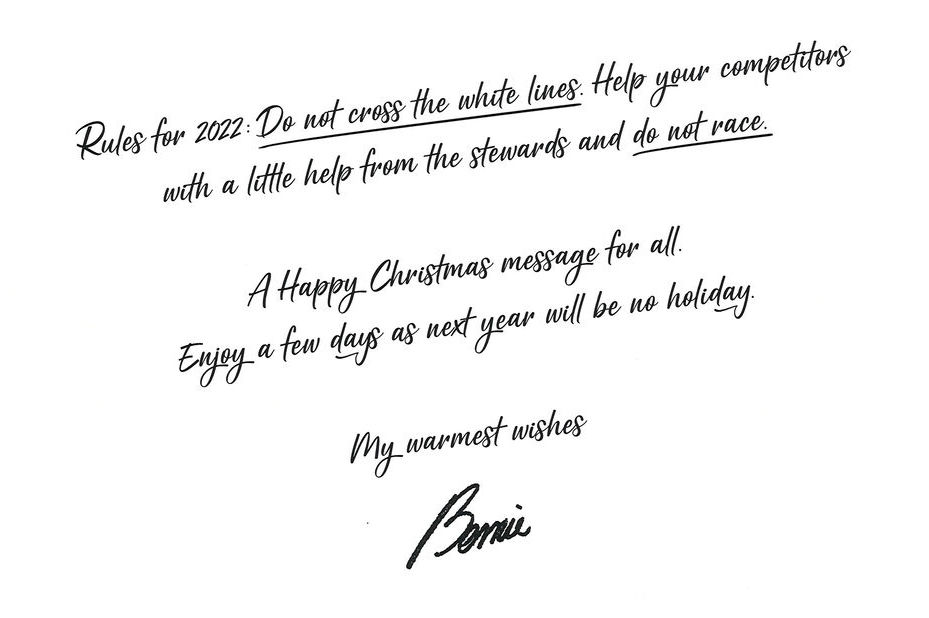 Rules for 2022: Do not cross the white lines. Help your competitors
with a little help from the stewards and do not race.
A Happy Christmas message for all.
Enjoy a few days as next year will be no holiday.
My warmest wishes
Bernie